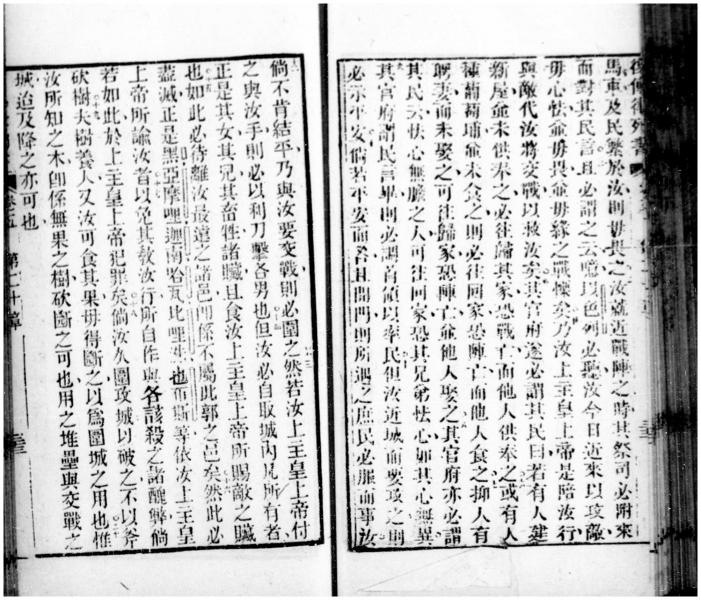 馬車及民繁於汝則毋畏之汝就近戰陣之時其祭司必附來
而對其民言且必謂之云噫以色列必聽汝今日近來以攻敵
毋心怯並毋畏並毋緣之戰慄矣乃汝上主皇上帝是陪汝行
與敵代汝將交戰以救汝矣其官府遂必謂其民曰若有人建
新屋並未供奉之必往歸其家恐戰亡而他人供奉之或有人
種葡萄埔並未食之則必往回家恐陣亡而他人食之抑人有
聘妻而未娶之可往歸家恐陣亡並他人娶之其官府亦必謂
其民云怯心無膽之人可往回家恐其兄弟怯心如其心無異
其官府謂民言畢則必謂首領以率民但汝近城而要攻之則
必示平安倘若平安而答且開門則所遇之庶民必服而事汝
倘不肯結平乃與汝要交戰則必圍之然若汝上主皇上帝付
之與汝手則必以利刀擊各男也但汝必自取城內凡所有者
正是其女其兒其畜牲諸贓且食汝上主皇上帝所賜敵之贓
也如此必待離汝最遠之諸邑即係不屬此郭之邑矣然此必
盡滅正是黑亞摩哩迦南哈瓦比哩洗也布斯等依汝上主皇
上帝所諭汝者以免其教汝行所自作與各該殺之諸醜弊倘
若如此於上主皇上帝犯罪矣倘汝久圍攻城以破之不以斧
砍樹夫樹養人又汝可食其果毋得斷之以爲圍城之用也惟
汝所知之木即係無果之樹砍斷之可也用之堆壘與交戰之
城迨及降之亦可也
卷五 第二十章